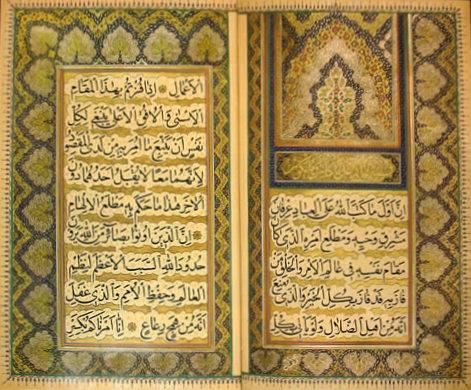 انّ اوّل ما كتب الله على العباد عرفان
مشرق وحيه ومطلع امره الذي كان
مقام نفسه في عالم الامر والخلق من
فاز به قد فاز بكلّ الخير والذي منع
انّه من اهل الضلال ولو يأتي بكلّ
الاعمال ۞ اذا فزتم بهذا المقام
الاسنى والافق الاعلى ينبغي لكلّ
نفس ان يتّبع ما امر به من لدى المقصود
لانّهما معا لا يقبل احدهما دون
الاخر هذا ما حكم به مطلع الالهام
۞ انّ الذين اوتوا بصائر من الله يرون
حدود الله السبب الاعظم لنظم
العالم وحفظ الامم والذي غفل
انّه من همج رعاع ۞ انّا امرناكم بكسر